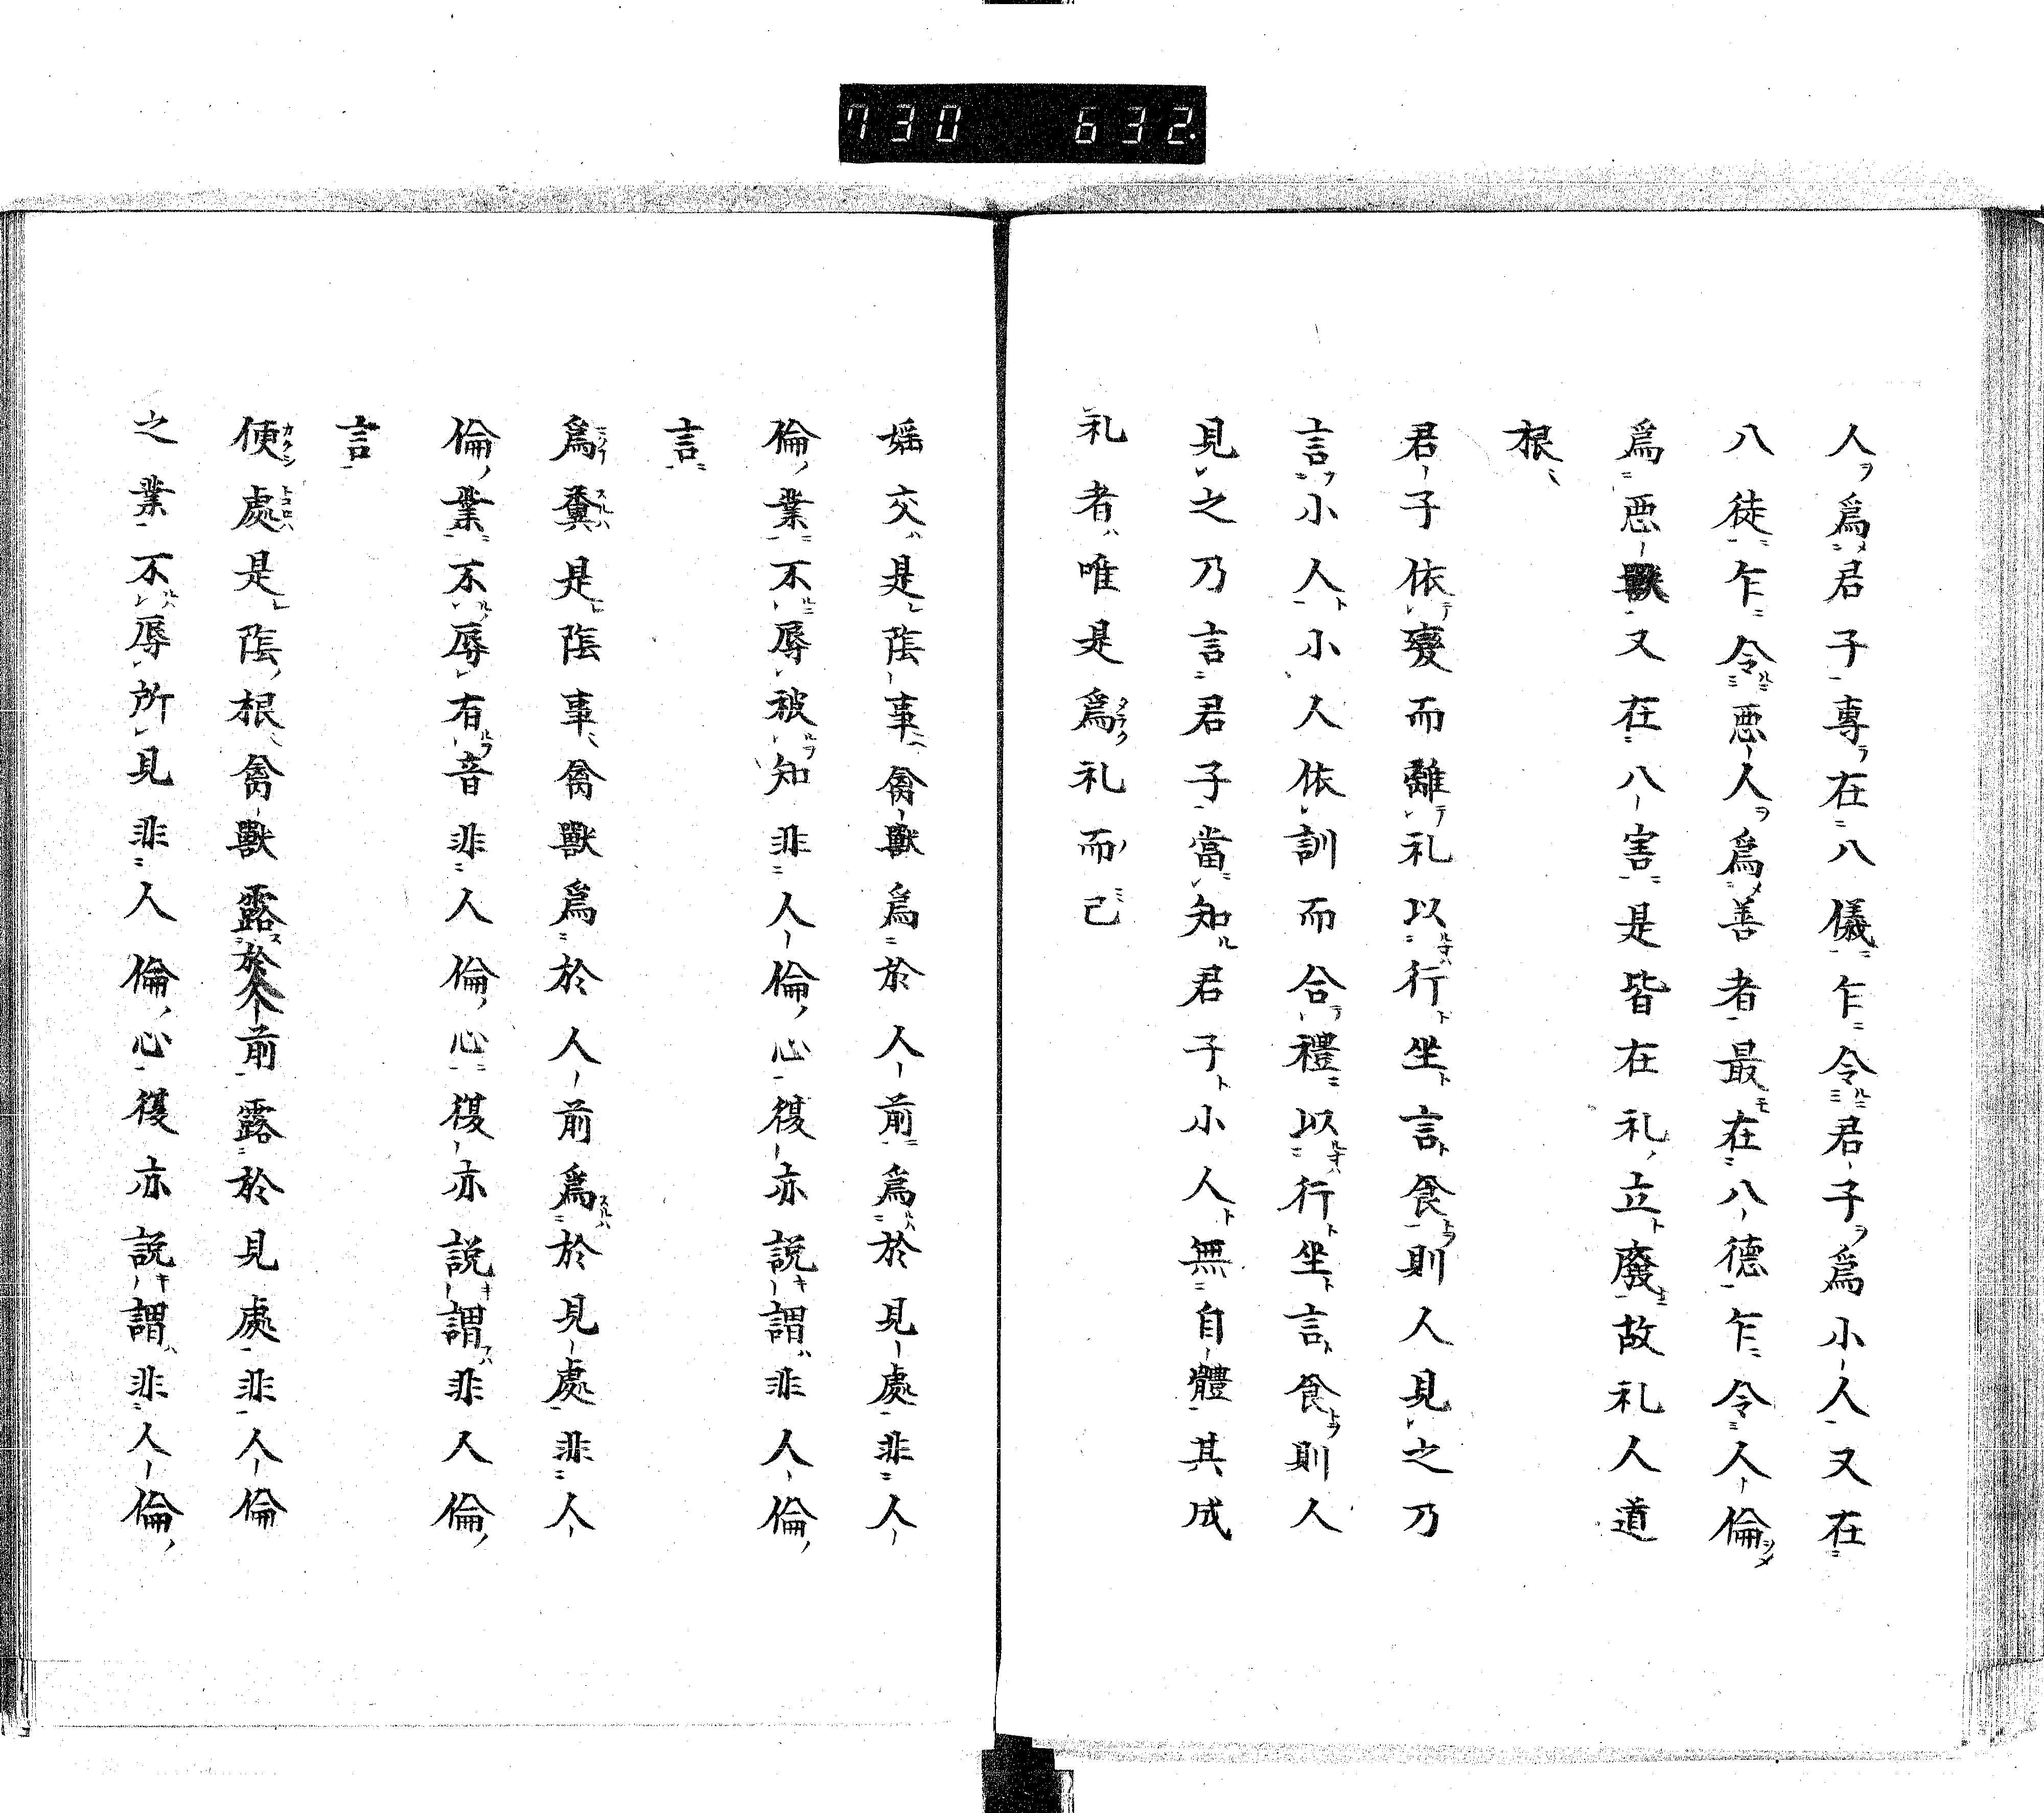 730 632.
人爲君子專在八儀乍令君子爲小人又在
八徒乍令惡人爲善者最在八德乍令人倫
爲惡獸又在八害是皆在礼立廢故礼人道
根
君子依變而離礼以行坐言食則人見之乃
言小人小人依訓而合禮以行坐言食則人
見之乃言君子當知君子小人無自體其成
礼者唯是爲礼而已
婬交是陰事禽獸爲於人前爲於見處非人
倫業不辱被知非人倫心復亦説謂非人倫
言
爲糞是陰事禽獸爲於人前爲於見處非人
倫業不辱有音非人倫心復亦説謂非人倫
言
便處是陰根禽獸露於人前露於見處非人倫
之業不辱所見非人倫心復亦説謂非人倫